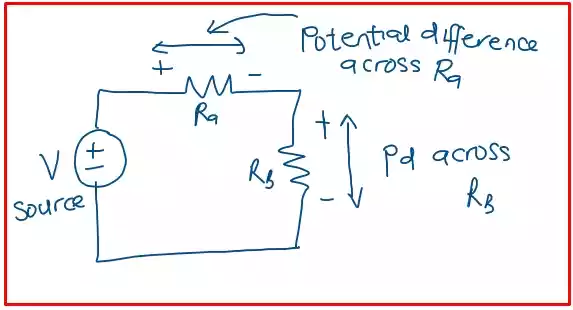 Potential difference
across Ra
+ -
Ra
+
-
V
Source
RB
+
-
Pd across
RB